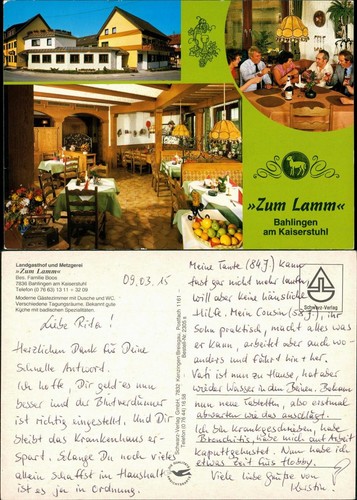 »Zum Lamm«
Bahlingen
am Kaiserstuhl
Landgasthof und Metzgerei
»Zum Lamm«
Bes. Familie Boos
7836 Bahlingen am Kaiserstuhl
Telefon (0 76 63) 13 11 + 32 09
Moderne Gästezimmer mit Dusche und WC.
Verschiedene Tagungsräume. Bekannt gute
Küche mit badischen Spezialitäten.
09.03.15
Liebe Rita!
Herzlichen Dank für Deine
schnelle Antwort.
Ich hoffe, Dir geht es nun
besser und der Blutverdünner
ist richtig eingestellt. Und Dir
bleibt das Krankenhaus er-
spart. Solange Du noch vieles
allein schaffst im Haushalt
ist es ja in Ordnung.
Schwarz-Verlag GmbH, 7832 Kenzingen/Breisgau, Postfach 1161
Telefon (0 76 44) 16 58
Bestell-Nr.
Schwarz-Verlag
Meine Tante (84 J.) kann
fast gar nicht mehr laufen
will aber keine häusliche
Hilfe. Mein Cousin (58 J.), ihr
Sohn praktisch, macht alles was
er kann, arbeitet aber auch wo-
anders und fährt hin + her.
Vati ist nun zu Hause, hat aber
wieder Wasser in den Beinen. Bekam
nun neue Tabletten, also erstmal
abwarten wie das anschlägt.
Ich bin krankgeschrieben, habe
Bronchitis, habe mich auf Arbeit
kaputtgehustet. Nun habe ich
etwas Zeit fürs Hobby.
Viele liebe Grüße von
Kerstin!